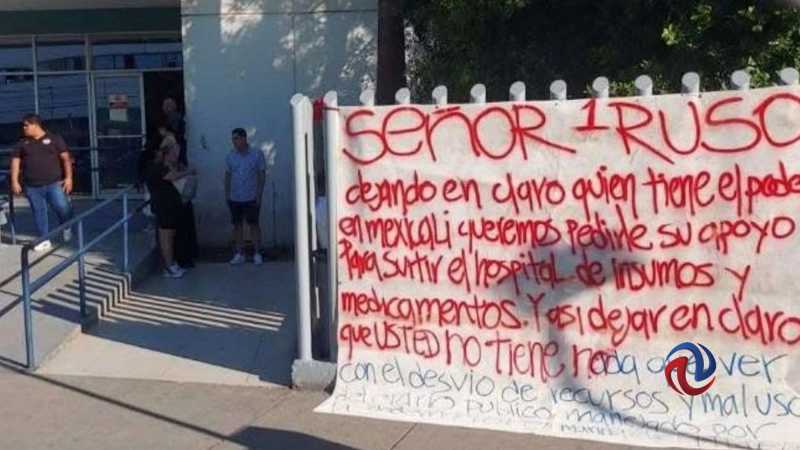 SEÑOR 1 RUSO
dejando en claro quien tiene el pode
en mexicali queremos Pedirle su apoyo
Para surtir el hospital de insumos y
medicamentos. Y asi dejar en claro
que USTED no tiene nada que ver
con el desvio de recursos y mal uso
del Publico manejado por